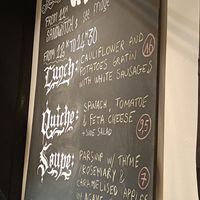 FROM 12H
SANDWICH'S
FROM 12H TO 14H30
Lunch: CAULIFLOWER AND
POTATOES GRATIN
WITH WHITE SAUSAGES
16
Quiche: SPINACH, TOMATOE
& FETA CHEESE
+ SIDE SALAD
9,5
Soupe: PARSNIP W/ THYME
/ROSEMARY &
CARAMELISED APPLES
7